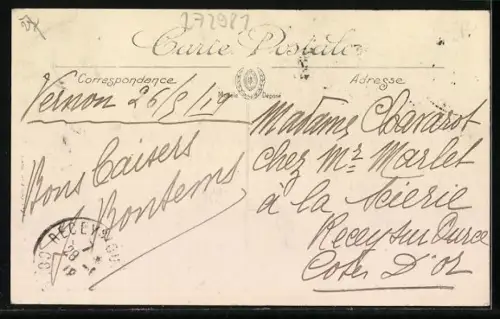 272982
Carte Postale
Correspondance
Adresse
Modèle Déposé
Vernon 26/9/19
Bons baisers
Bontems
Madame Chavarot
chez Mr Marlet
à la Scierie
Recey sur Ource
Cotes D'Or
RECEY
28